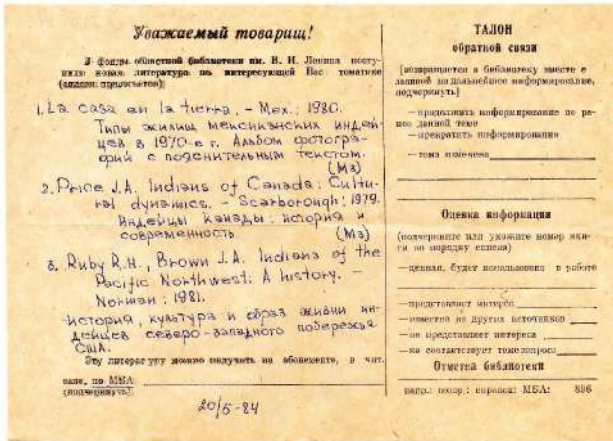 Уважаемый товарищ!
В фонды областной библиотеки им. В. И. Ленина посту-
пила новая литература по интересующей Вас тематике
1. La casa en la tierra. - Mex.: 1980.
Типы жилищ мексиканских индей-
цев в 1970-е г. Альбом фотогра-
фий с пояснительным текстом.
(М3)
2. Price J.A. Indians of Canada: Cultu-
ral dynamics. - Scarborough: 1979.
Индейцы Канады: история и
современность (М3)
3. Ruby R.H., Brown J.A. Indians of the
Pacific Northwest: A history. -
Norman: 1981.
-история, культура и образ жизни ин-
дейцев северо-западного побережья
США.
Эту литературу можно получить на абонементе, в чит.
зале, по МБА
(подчеркнуть)
20/5-84
ТАЛОН
обратной связи
(возвращается в библиотеку вместе с
подчеркнуть)
—продолжить информирование по ра-
нее данной теме
—прекратить информирование
—тема изменена
Оценка информации
(подчеркните или укажите номер кни-
ги по порядку списка)
—ценная, будет использована в работе
—представляет интерес
—известна из других источников
—не представляет интереса
—не соответствует теме запроса
Отметка библиотеки
МБА: